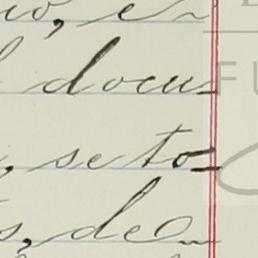 io, e
l docu-
, se to-
s, de